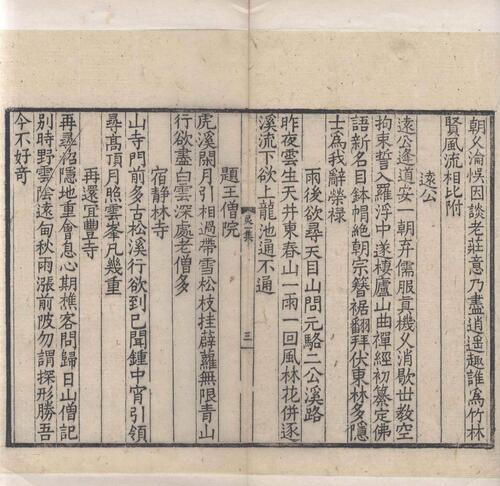 朝久淪悞因談老莊意乃盡逍遥趣誰爲竹林
賢風流相比附
遠公
遠公逢道安一朝弃儒服真機久消歇世教空
拘束誓入羅浮中遂棲廬山曲禪經初纂定佛
語新名目鉢帽絶朝宗簪裾翻拜伏東林多隱
士爲我辭榮禄
雨後欲尋天目山問元駱二公溪路
昨夜雲生天井東春山一雨一回風林花併逐
溪流下欲上龍池通不通
三
題王僧院
虎溪閑月引相過帶雪松枝挂薜蘿無限青山
行欲盡白雲深處老僧多
宿静林寺
山寺門前多古松溪行欲到已聞鍾中宵引領
尋高頂月照雲峯凡幾重
再還宜豐寺
再尋招隱地重會息心期樵客問歸日山僧記
别時野雲陰遠甸秋雨漲前陂勿謂探形勝吾
今不好奇